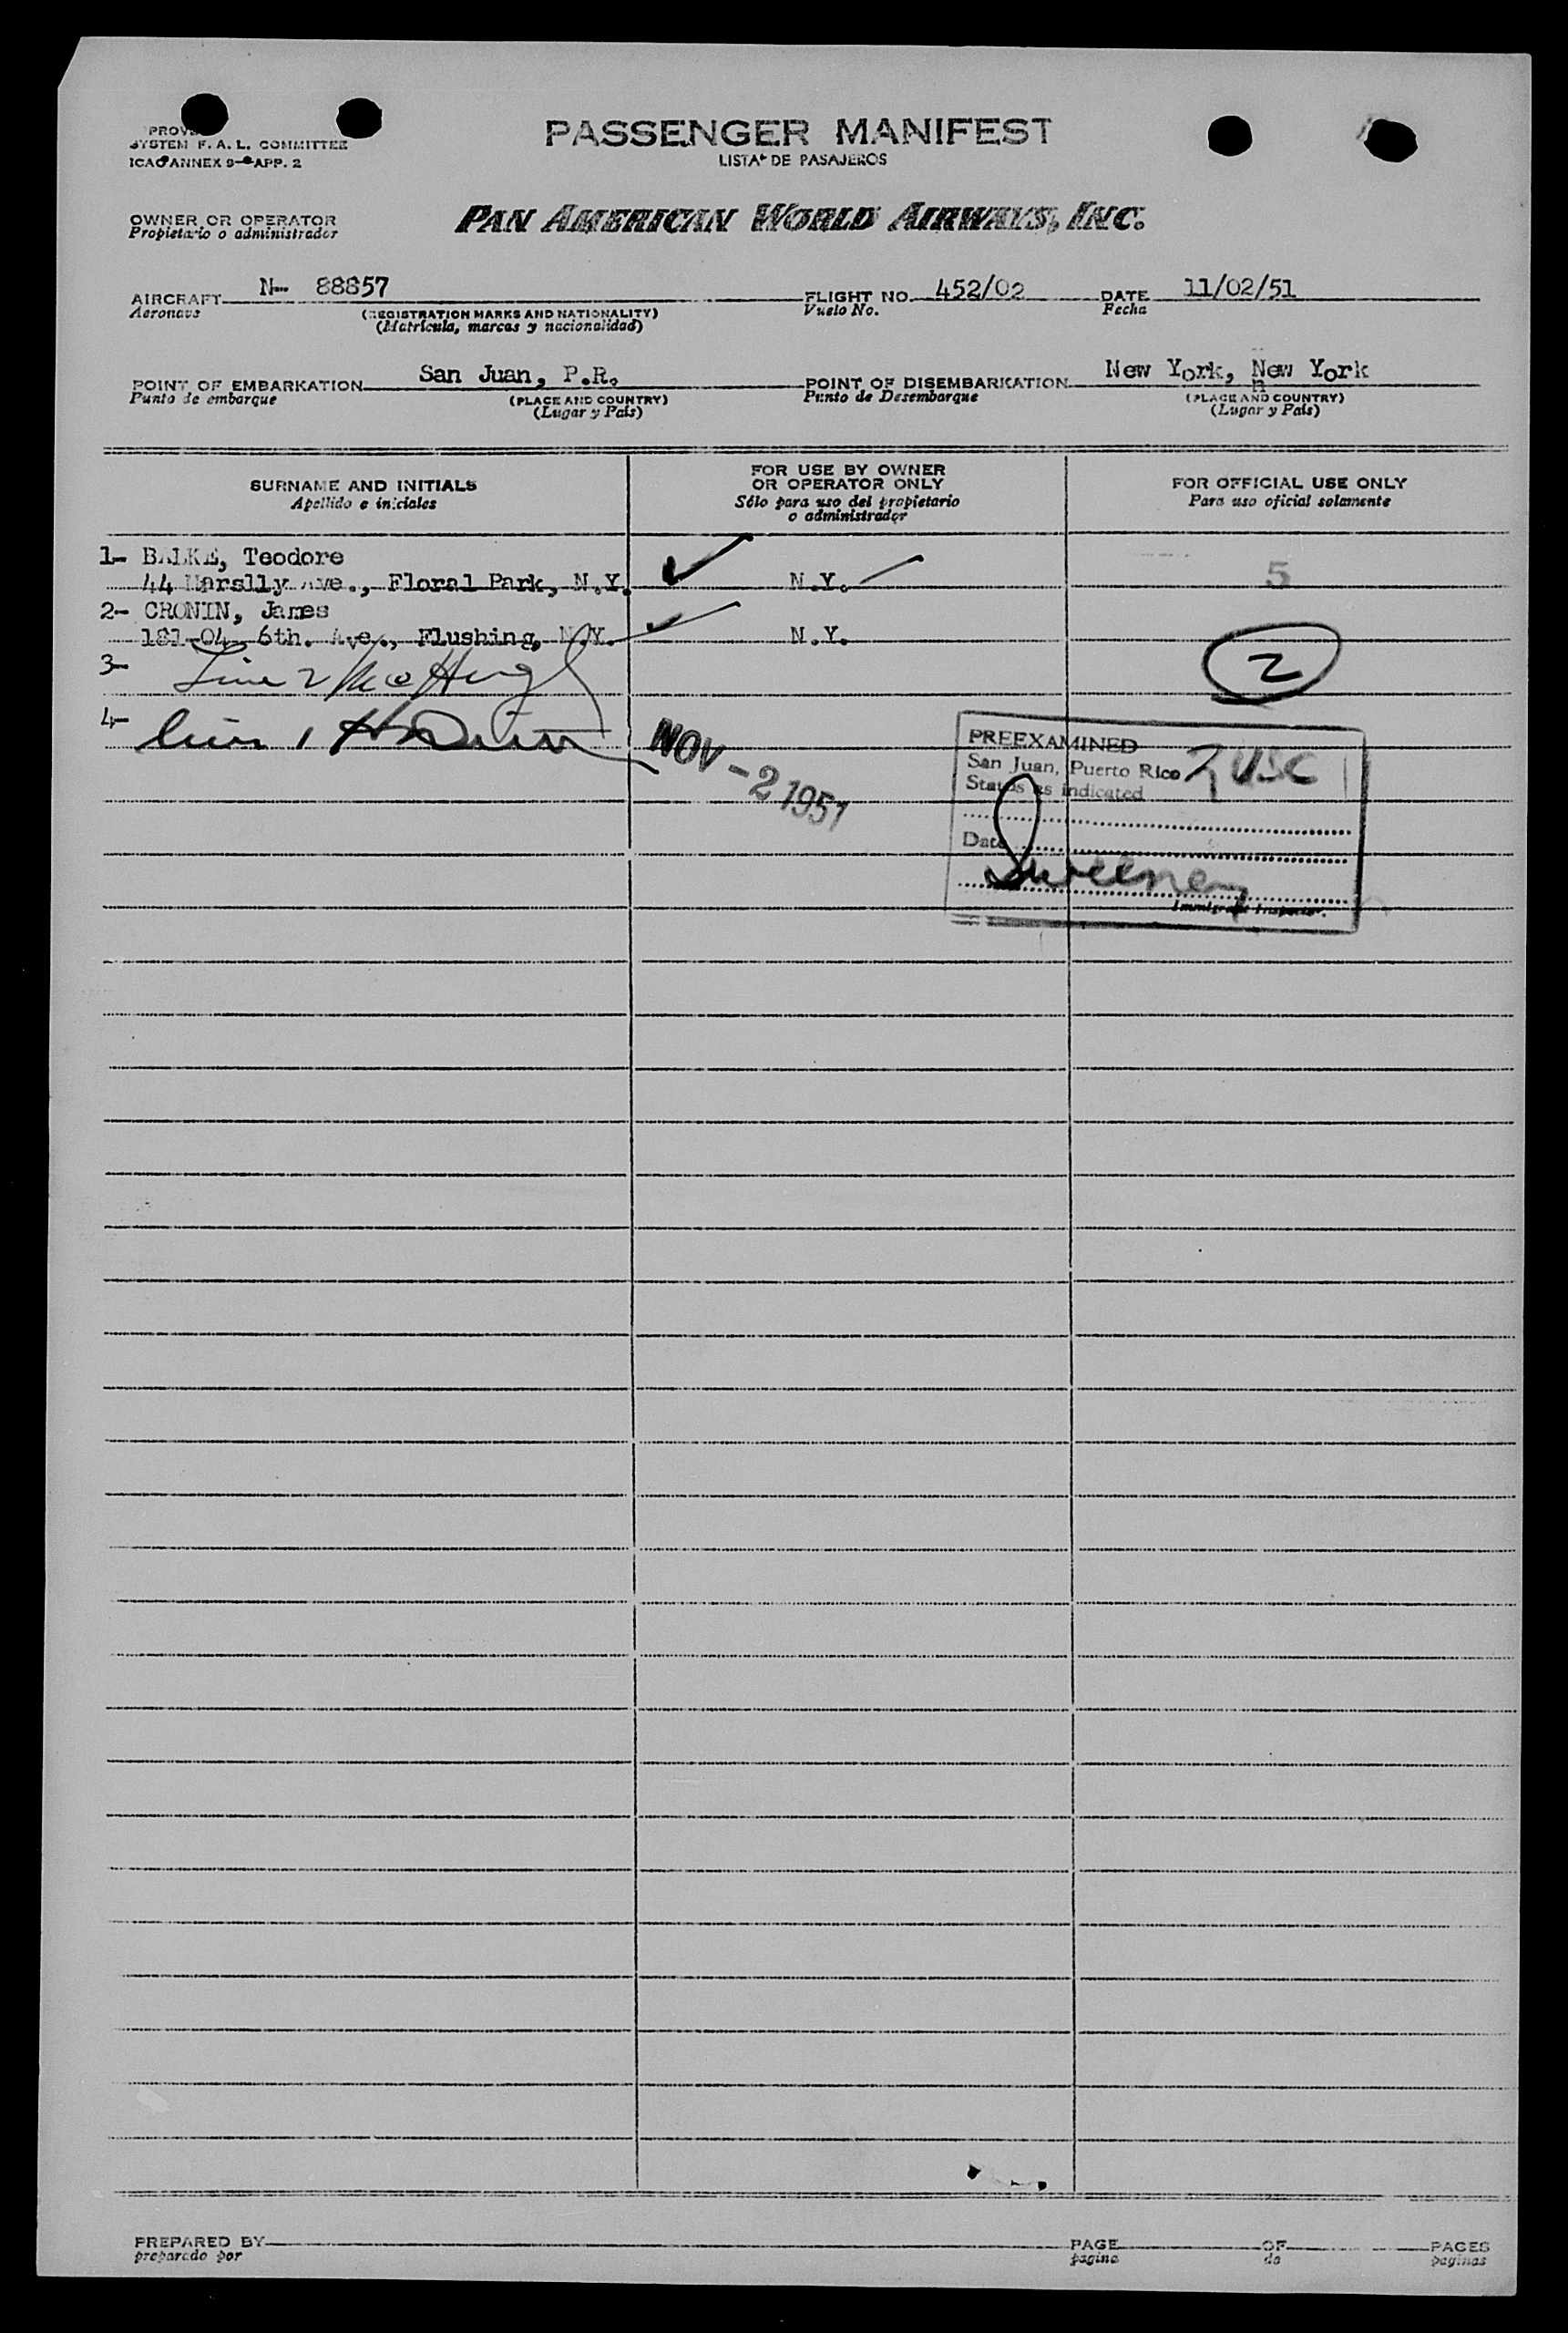 SYSTEM F. A. L. COMMITTEE
ICAO ANNEX 9- APP. 2
PASSENGER MANIFEST
LISTA DE PASAJEROS
OWNER OR OPERATOR
Propietario o administrador
PAN AMERICAN WORLD AIRWAYS, INC.
AIRCRAFT N- 88857 FLIGHT NO. 452/02 DATE 11/02/51
Aeronave (REGISTRATION MARKS AND NATIONALITY) Vuelo No. Fecha
(Matrícula, marcas y nacionalidad)
POINT OF EMBARKATION San Juan, P.R. POINT OF DISEMBARKATION New York, New York
Punto de embarque (PLACE AND COUNTRY) Punto de Desembarque (PLACE AND COUNTRY)
(Lugar y País) (Lugar y País)
SURNAME AND INITIALS
Apellido e iniciales
FOR USE BY OWNER
OR OPERATOR ONLY
Sólo para uso del propietario
o administrador
FOR OFFICIAL USE ONLY
Para uso oficial solamente
1- BALKE, Teodore
44 Ave., Floral Park, N.Y. N.Y. 5
2- CRONIN, James
181-04 6th. Ave., Flushing, N.Y. N.Y.
3- Line 2 2
4- 1
NOV -2 1951
PREEXAMINED
San Juan, Puerto Rico 2 USC
Status as indicated
Date
Sweeney
Immigrant Inspector.
PREPARED BY PAGE OF PAGES
preparado por pagina de paginas